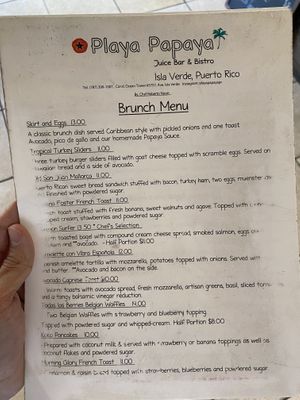 Playa Papaya
Juice Bar & Bistro
Isla Verde, Puerto Rico
Brunch Menu
Skirt and Eggs 13.00
A classic brunch dish served Caribbean style with pickled onions and one toast
Avocado, pico de gallo and our homemade Papaya Sauce.
Tropical Turkey Sliders 11.00
three turkey burger sliders filled with goat cheese topped with scramble eggs. Served on
Hawaiian bread and a side of avocado.
Old San Juan Mallorca 11.00
Puerto Rican sweet bread sandwich stuffed with bacon, turkey ham, two eggs, muenster
finished with powdered sugar.
Foster French Toast 11.00
toast stuffed with fresh banana, sweet walnuts and agave. Topped with
cream, strawberries and powdered sugar.
Surfer 13.50 * Chef's Selection
toasted bagel with compound cream cheese spread, smoked salmon, eggs
and **avocado. -Half Portion $8.00
con Vibra Española 12.00
omelette tortilla with mozzarella, potatoes topped with onions. Served with
and butter. **Avocado and bacon on the side.
Avocado Caprese Toast $10.00
toasts with avocado, fresh mozzarella, artisan greens, basil, sliced
and a tangy balsamic vinegar reduction.
Todas los bemes Belgian Waffles 14.00
Two Belgian Waffles with strawberry and blueberry topping
Topped with powdered sugar and whipped-cream. Half Portion $8.00
Koko Pancakes 10.00
Prepared with coconut milk & served with strawberry or banana toppings as well as
coconut flakes and powdered sugar.
Morning Glory French Toast 11.00
& raisin bread topped with strawberries, blueberries and powdered sugar